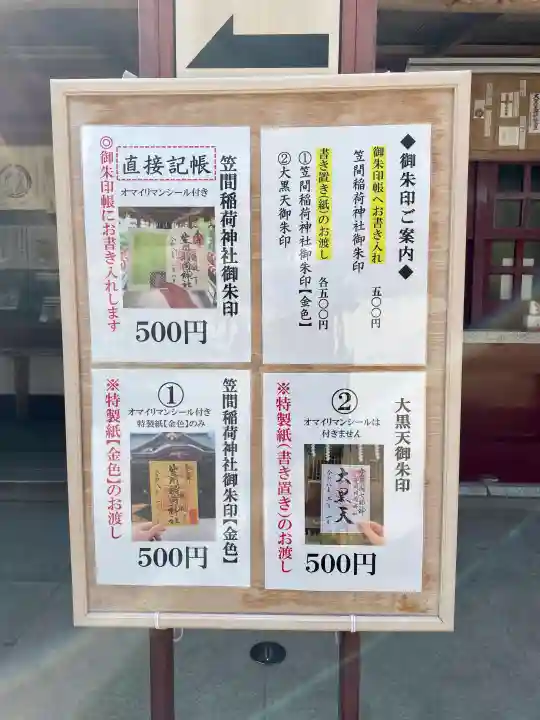 ◆御朱印ご案内◆
御朱印帳へお書き入れ
笠間稲荷神社御朱印
五〇〇円
書き置き(紙)のお渡し
各五〇〇円
①笠間稲荷神社御朱印【金色】
②大黒天御朱印
笠間稲荷神社御朱印
直接記帳
オマイリマンシール付き
◎御朱印帳にお書き入れします
500円
大黒天御朱印
②
オマイリマンシールは
付きません
※特製紙(書き置き)のお渡し
大黒天
500円
笠間稲荷神社御朱印【金色】
①
オマイリマンシール付き
特製紙【金色】のみ
※特製紙【金色】のお渡し
500円